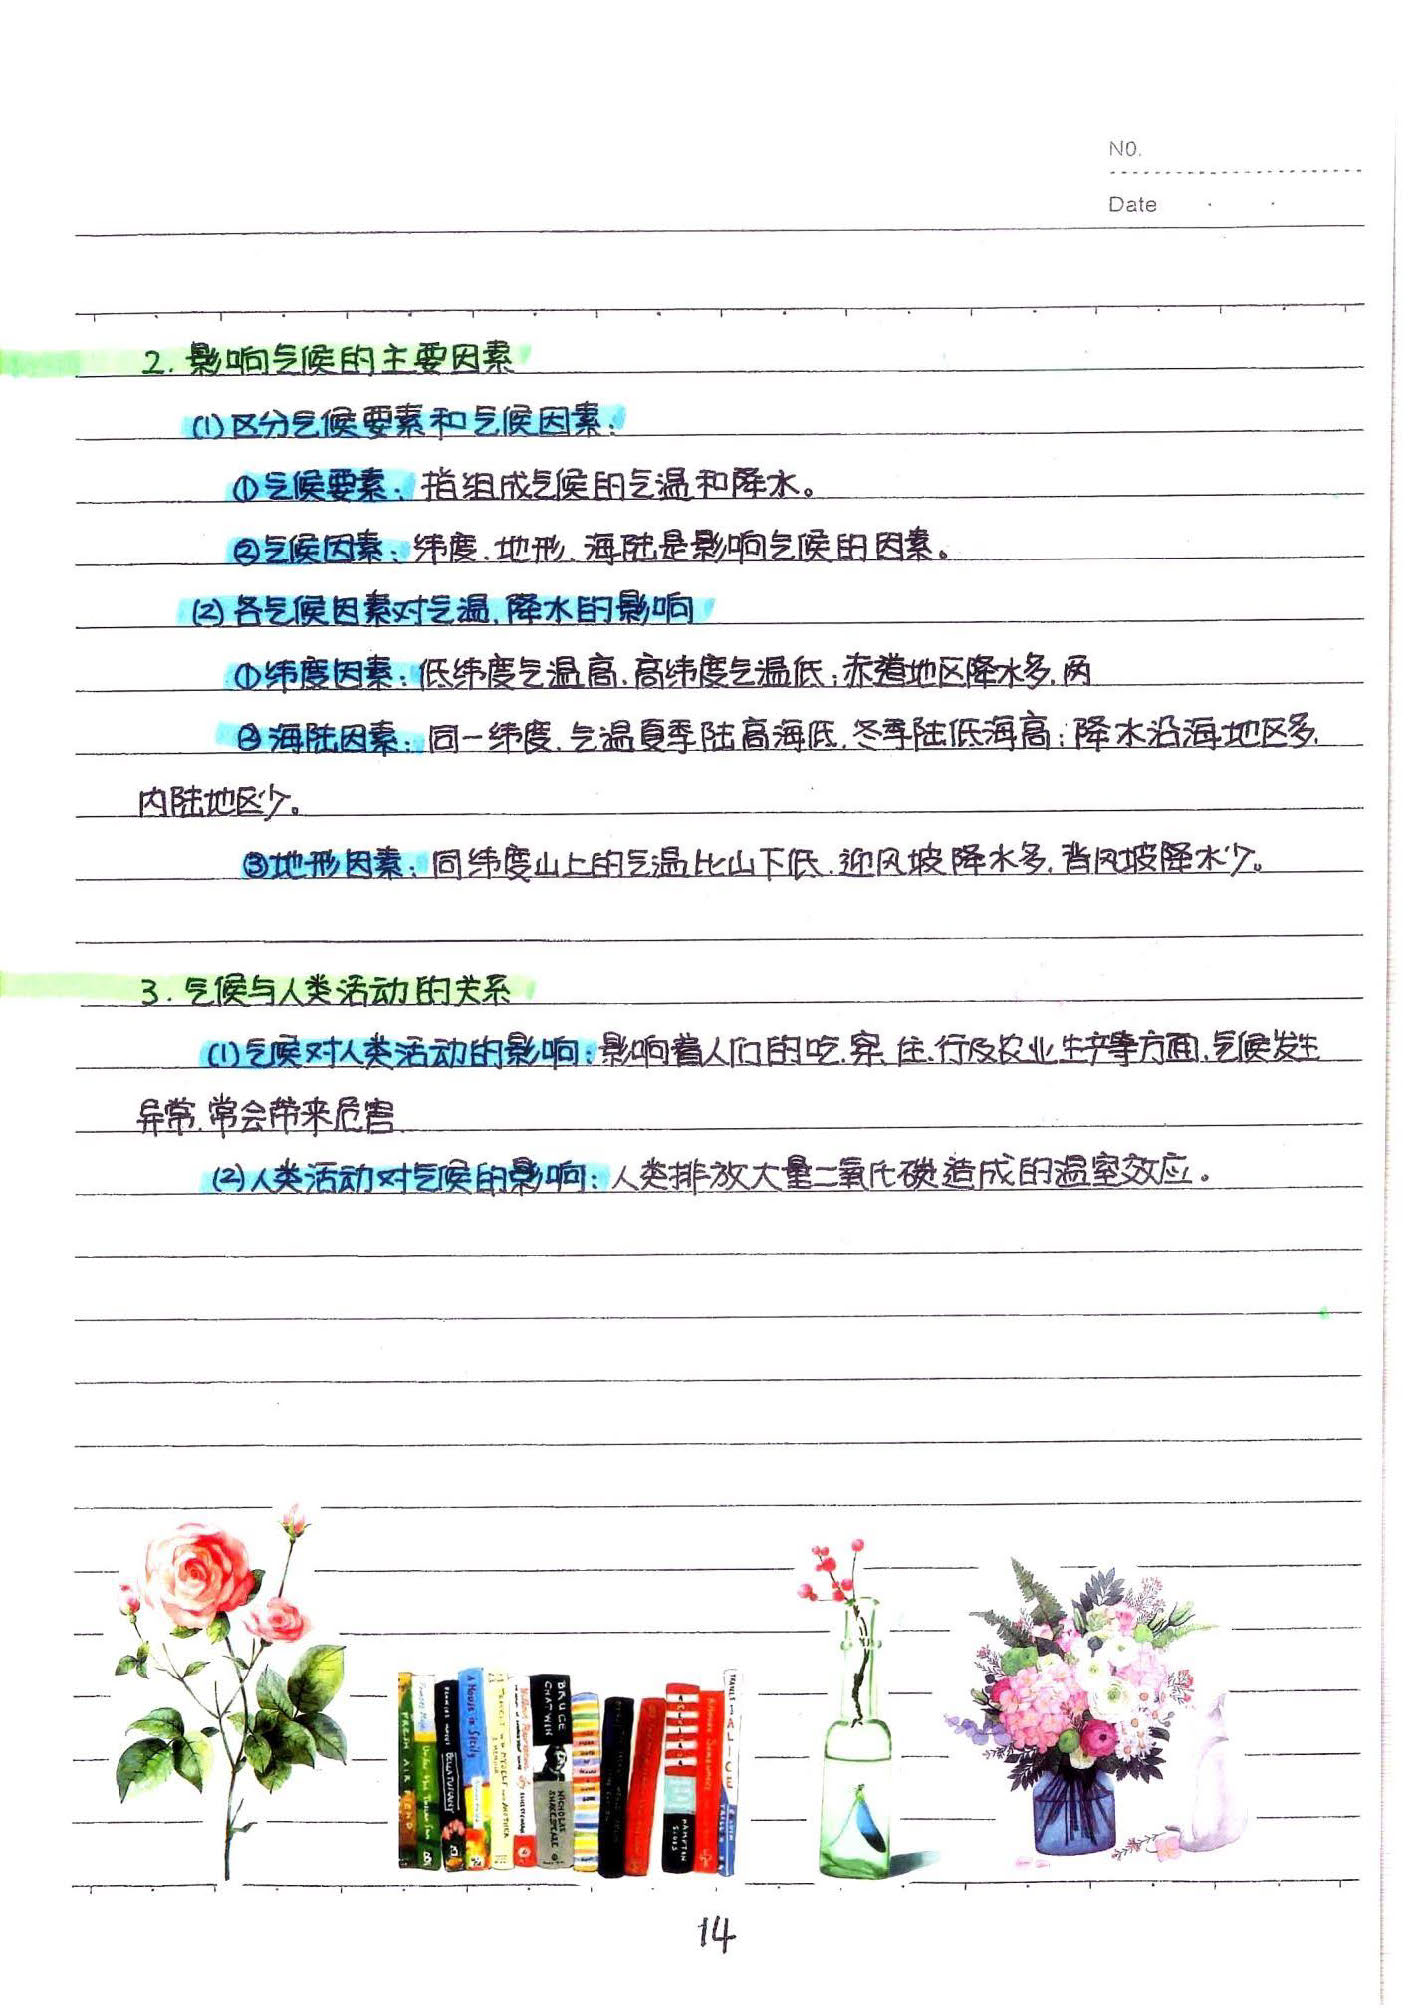 NO.
Date
2. 影响气候的主要因素
(1)区分气候要素和气候因素:
①气候要素: 指组成气候的气温和降水。
②气候因素: 纬度、地形、海陆是影响气候的因素。
(2)各气候因素对气温、降水的影响
①纬度因素: 低纬度气温高、高纬度气温低; 赤道地区降水多、两
②海陆因素: 同一纬度、气温夏季陆高海低、冬季陆低海高; 降水沿海地区多、
内陆地区少。
③地形因素: 同纬度山上的气温比山下低、迎风坡降水多、背风坡降水少。
3. 气候与人类活动的关系
(1)气候对人类活动的影响: 影响着人们的吃、穿、住、行及农业生产等方面、气候发生
异常、常会带来危害
(2)人类活动对气候的影响: 人类排放大量二氧化碳造成的温室效应。
BRUCE CHATWIN
NICHOLAS SHAKESPEARE
A Mouse in Sicily
ALICE
14